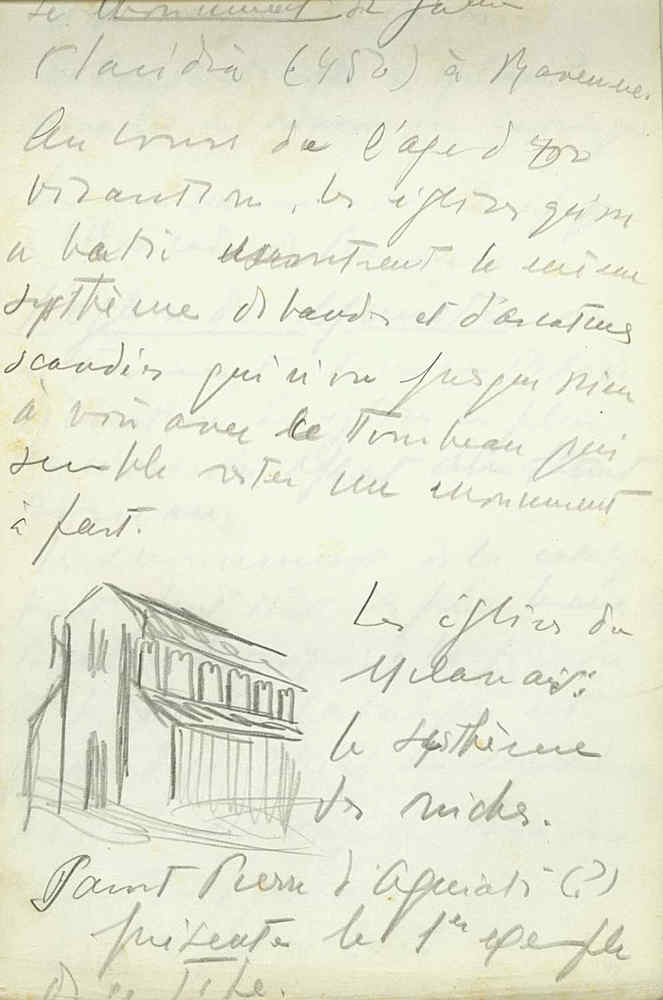 le monument de Galla
Placidia (450) à Ravenne.
Au cours de l'âge d'or
bizantin, les églises qu'on
a bati montrent le même
systhème de bandes et d'arcatures
qui n'a rien
à voir avec le Tombeau qui
semble rester un monument
à part.
Les églises du
Milanais:
le systhème
des niches.
Saint Pierre d'Agliati (?)
présente le 1er exemple
de ce type.